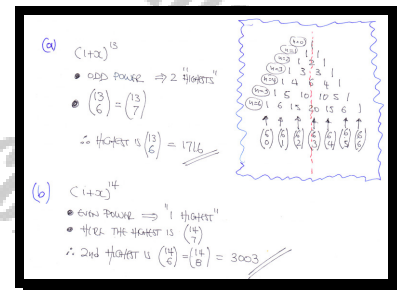 (a) (1+x)^13
• ODD POWER ⇒ 2 "HIGHESTS"
• (13 6) = (13 7)
∴ HIGHEST IS (13 6) = 1716
n=0 1
n=1 1 1
n=2 1 2 1
n=3 1 3 3 1
n=4 1 4 6 4 1
n=5 1 5 10 10 5 1
n=6 1 6 15 20 15 6 1
(6 0) (6 1) (6 2) (6 3) (6 4) (6 5) (6 6)
(b) (1+x)^14
• EVEN POWER ⇒ "1 HIGHEST"
• HERE THE HIGHEST IS (14 7)
∴ 2nd HIGHEST IS (14 6) = (14 8) = 3003